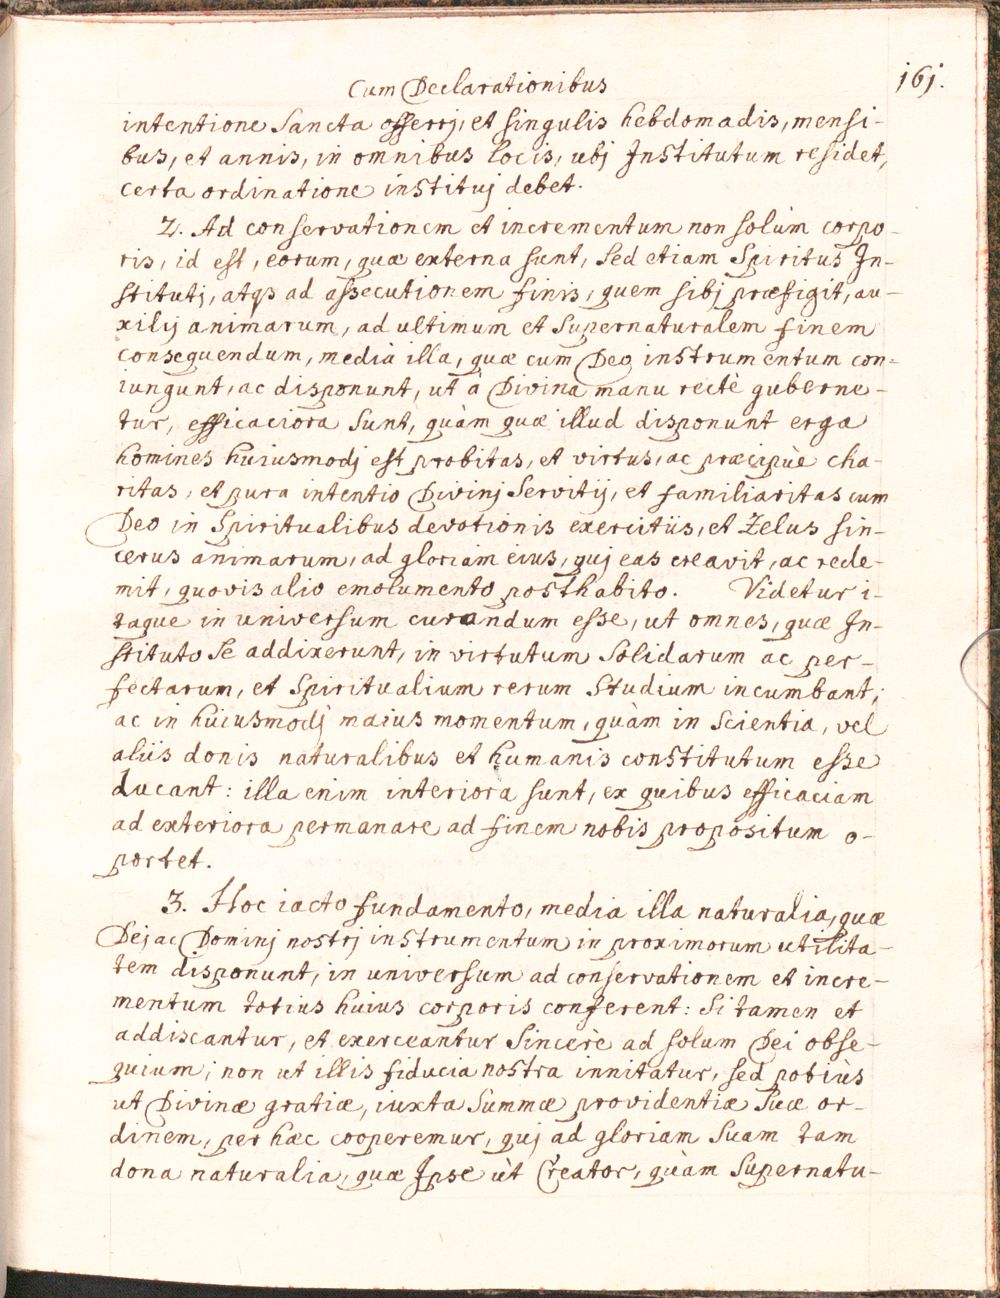 Cum Declarationibus
161.
intentione Sancta offerrj, et singulis hebdomadis, mensi-
bus, et annis, in omnibus locis, ubj Institutum residet,
certa ordinatione instituj debet.
2. Ad conservationem et incrementum non solùm corpo-
ris, id est, eorum, quæ externa sunt, sed etiam Spiritus In-
stitutj, atqȝ ad assecutionem finis, quem sibj præfigit, au-
xilij animarum, ad ultimum et supernaturalem finem
consequendum, medià illa, quæ cum Deo instrumentum con-
iungunt, ac disponunt, ut à Divina manu rectè guberne-
tur, efficaciora sunt, quàm quæ illud disponunt erga
homines huiusmodj est probitas, et virtus, ac præcipùe cha-
ritas, et pura intentio Divinj Servitij, et familiaritas cum
Deo in Spiritualibus devotionis exercitiis, et Zelus sin-
cerus animarum, ad gloriam eius, quj eas creavit, ac rede-
mit, quovis alio emolumento posthabito. Videtur i-
taque in universum curandum esse, ut omnes, quæ In-
stituto se addixerunt, in virtutum solidarum ac per-
fectarum, et Spiritualium rerum studium incumbant;
ac in huiusmodj maius momentum, quàm in scientia, vel
aliis donis naturalibus et humanis constitutum esse
ducant: illa enim interiora sunt, ex quibus efficaciam
ad exteriora permanare ad finem nobis propositum o-
portet.
3. Hoc iacto fundamento, media illa naturalia, quæ
Dej ac Dominj nostrj instrumentum in proximorum utilita-
tem disponunt, in universum ad conservationem et incre-
mentum totius huius corporis conferent: Si tamen et
addiscantur, et exerceantur sincerè ad solum Dei obse-
quium; non ut illis fiducia nostra innitatur, sed potiùs
ut Divinæ gratiæ, iuxta summæ providentiæ suæ or-
dinem, per hæc cooperemur, quj ad gloriam suam tam
dona naturalia, quæ Ipse ùt Creator, quàm supernatu-